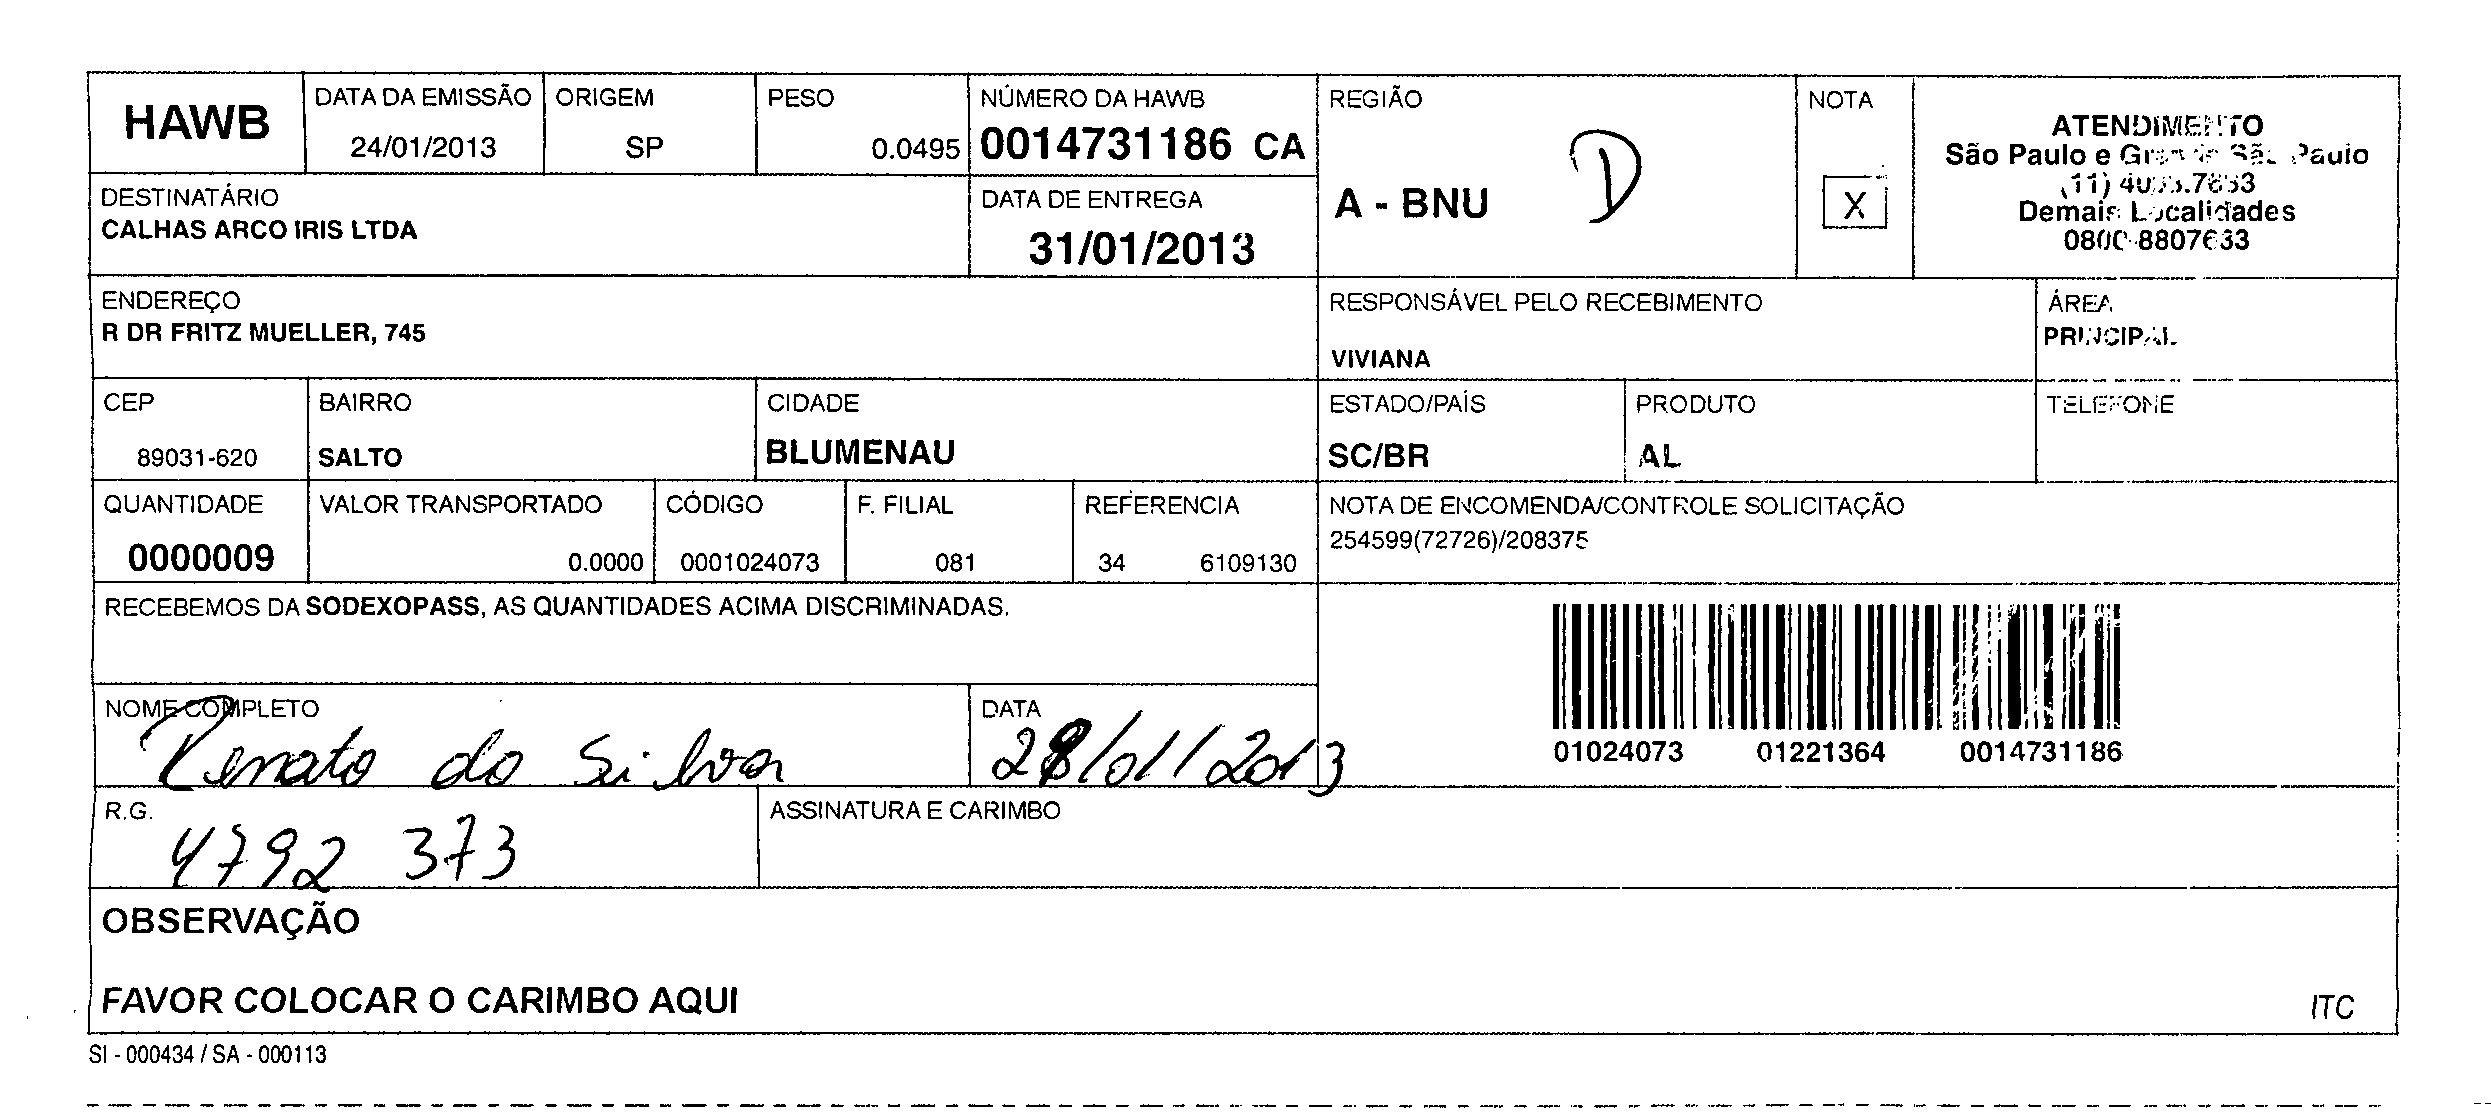 HAWB
DATA DA EMISSÃO
24/01/2013
ORIGEM
SP
PESO
0.0495
NÚMERO DA HAWB
0014731186 CA
REGIÃO
A - BNU D
NOTA
X
ATENDIMENTO
São Paulo e Grande São Paulo
(11)
Demais Localidades
0800
DESTINATÁRIO
CALHAS ARCO IRIS LTDA
DATA DE ENTREGA
31/01/2013
ENDEREÇO
R DR FRITZ MUELLER, 745
RESPONSÁVEL PELO RECEBIMENTO
VIVIANA
ÁREA
PRINCIPAL
CEP
89031-620
BAIRRO
SALTO
CIDADE
BLUMENAU
ESTADO/PAÍS
SC/BR
PRODUTO
AL
TELEFONE
QUANTIDADE
0000009
VALOR TRANSPORTADO
0.0000
CÓDIGO
0001024073
F. FILIAL
081
REFERENCIA
34 6109130
NOTA DE ENCOMENDA/CONTROLE SOLICITAÇÃO
254599(72726)/208375
RECEBEMOS DA SODEXOPASS, AS QUANTIDADES ACIMA DISCRIMINADAS.
01024073 01221364 0014731186
NOME COMPLETO
Renato da Silva
DATA
28/01/2013
R.G.
4792 373
ASSINATURA E CARIMBO
OBSERVAÇÃO
FAVOR COLOCAR O CARIMBO AQUI
ITC
SI - 000434 / SA - 000113